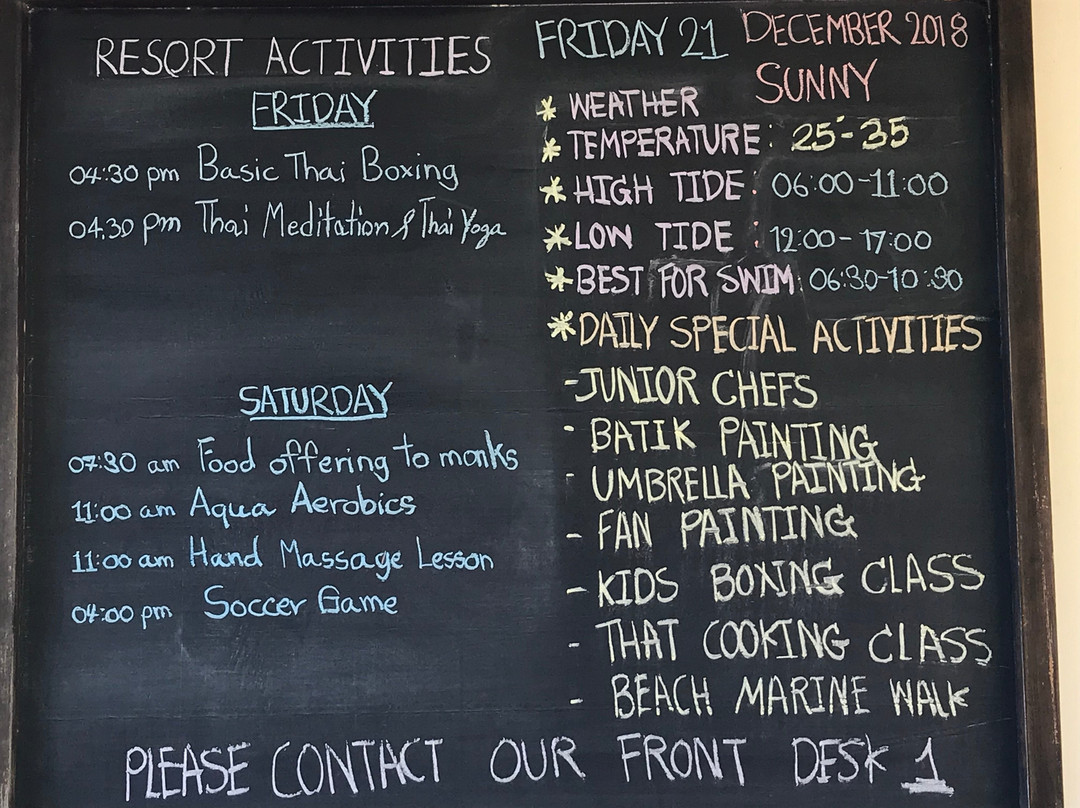 RESORT ACTIVITIES
FRIDAY
04:30 pm Basic Thai Boxing
04.30 pm Thai Meditation & Thai Yoga
SATURDAY
07:30 am Food offering to monks
11:00 am Aqua Aerobics
11:00 am Hand Massage Lesson
04:00 pm Soccer Game
FRIDAY 21 DECEMBER 2018
* WEATHER SUNNY
* TEMPERATURE: 25°-35
* HIGH TIDE: 06:00-11:00
* LOW TIDE: 12:00-17:00
* BEST FOR SWIM: 06:30-10:30
* DAILY SPECIAL ACTIVITIES
- JUNIOR CHEFS
- BATIK PAINTING
- UMBRELLA PAINTING
- FAN PAINTING
- KIDS BOXING CLASS
- THAT COOKING CLASS
- BEACH MARINE WALK
PLEASE CONTACT OUR FRONT DESK 1